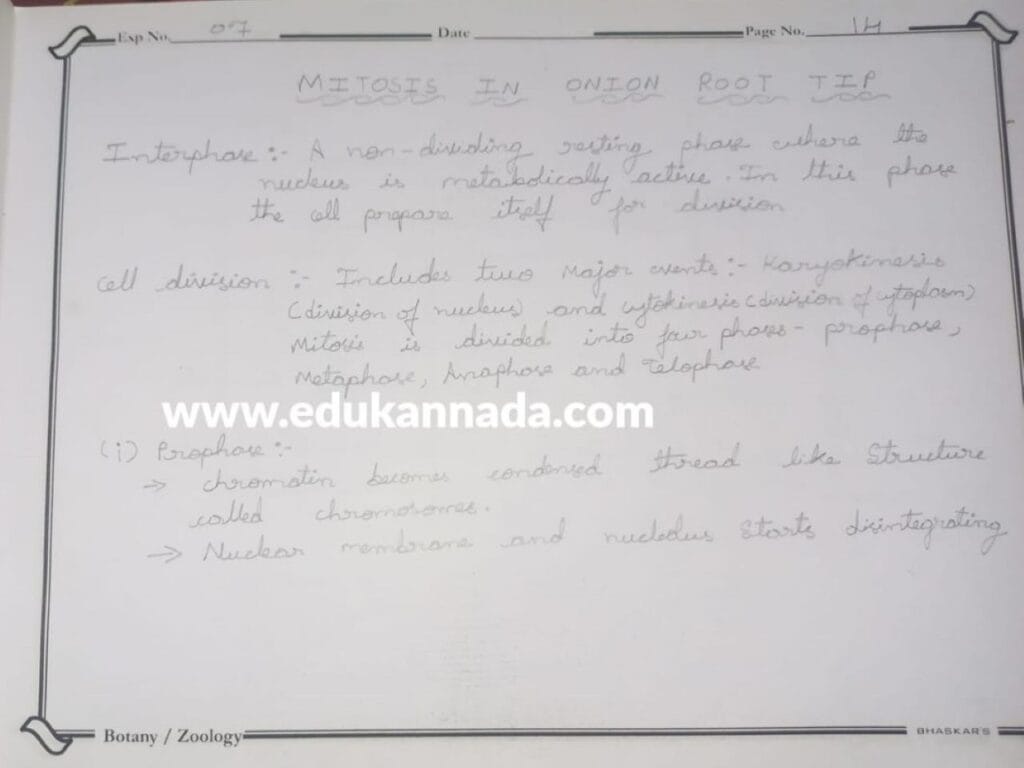 Exp No. 07 Date Page No. 14
MITOSIS IN ONION ROOT TIP
Interphase :- A non-dividing resting phase where the
nucleus is metabolically active. In this phase
the cell prepare itself for division
Cell division :- Includes two Major events :- Karyokinesis
(division of nucleus) and cytokinesis (division of cytoplasm)
Mitosis is divided into four phases - prophase,
Metaphase, Anaphase and Telophase
www.edukannada.com
(i) Prophase :-
→ chromatin becomes condensed thread like Structure
called chromosomes.
→ Nuclear membrane and nucleolus Starts disintegrating
Botany / Zoology BHASKAR'S